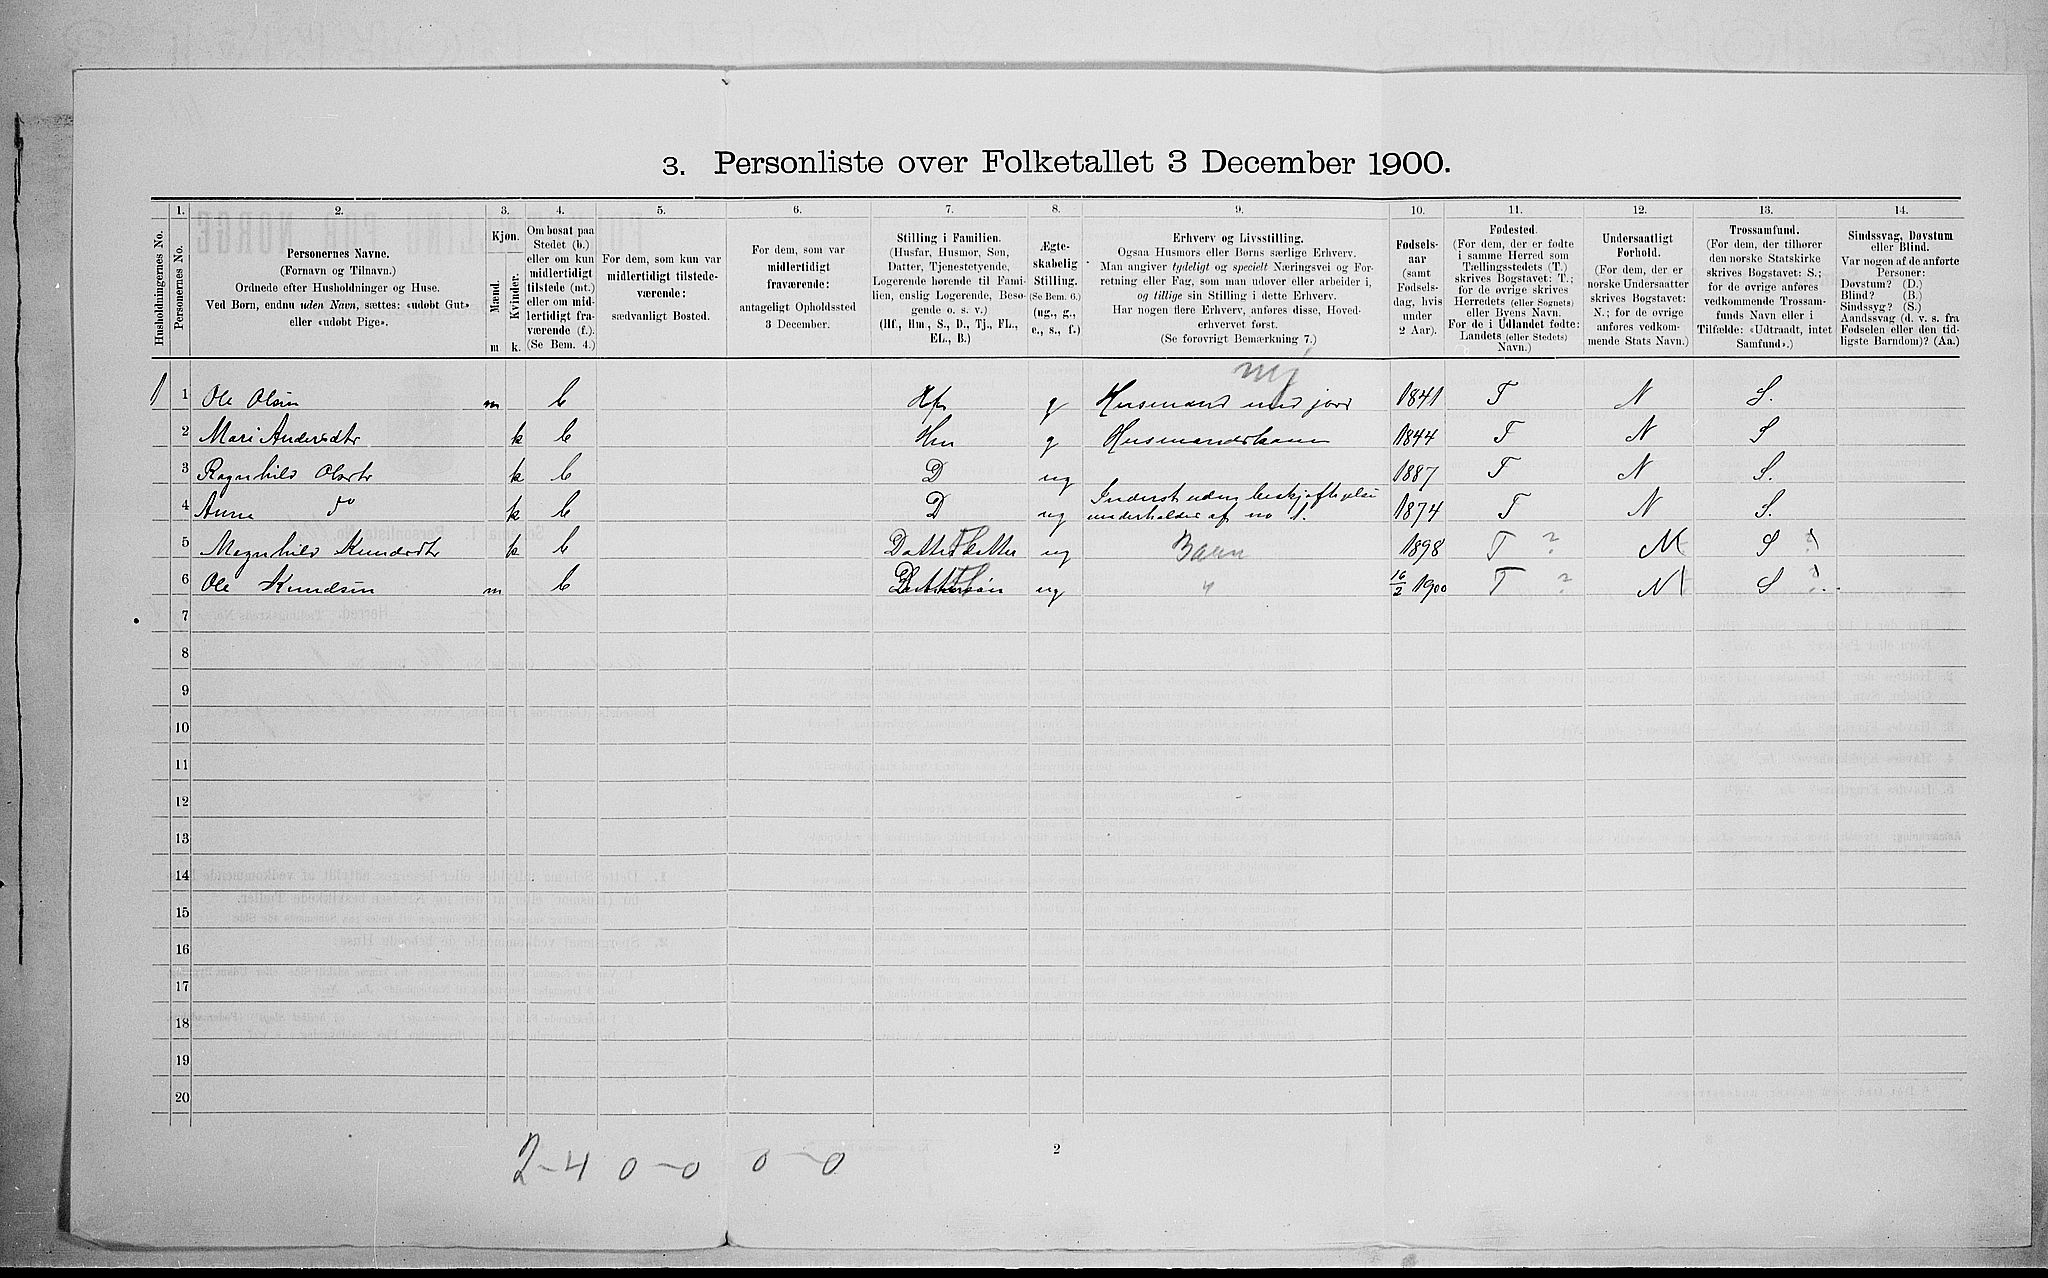 3. Personliste over Folketallet 3 December 1900.
1. 2. 3. 4. 5. 6. 7. 8. 9. 10. 11. 12. 13. 14.
Husholdningernes No.
Personernes No.
Personernes Navne.
(Fornavn og Tilnavn.)
Ordnede efter Husholdninger og Huse.
Ved Børn, endnu uden Navn, sættes: «udøbt Gut»
eller «udøbt Pige».
Kjøn.
Mænd.
Kvinder.
m k.
Om bosat paa
Stedet (b.)
eller om kun
midlertidigt
tilstede (mt.)
eller om mid-
lertidigt fra-
værende (f.).
(Se Bem. 4.)
For dem, som kun var
midlertidigt tilstede-
værende:
sædvanligt Bosted.
For dem, som var
midlertidigt
fraværende:
antageligt Opholdssted
3 December.
Stilling i Familien.
(Husfar, Husmor, Søn,
Datter, Tjenestetyende,
Logerende hørende til Fami-
lien, enslig Logerende, Besø-
gende o. s. v.)
(Hf., Hm., S., D., Tj., FL.,
EL., B.)
Ægte-
skabelig
Stilling.
(Se Bem. 6.)
(ug., g.,
e., s., f.)
Erhverv og Livsstilling.
Ogsaa Husmors eller Børns særlige Erhverv.
Man angiver tydeligt og specielt Næringsvei og For-
retning eller Fag, som man udover eller arbeider i,
og tillige sin Stilling i dette Erhverv.
Har nogen flere Erhverv, anføres disse, Hoved-
erhvervet først.
(Se forøvrigt Bemærkning 7.)
Fødsels-
aar
(samt
Fødsels-
dag, hvis
under
2 Aar).
Fødested.
(For dem, der er fødte
i samme Herred som
Tællingsstedets (T.)
skrives Bogstavet: T.;
for de øvrige skrives
Herredets (eller Sognets)
eller Byens Navn.
For de i Udlandet fødte:
Landets (eller Stedets)
Navn.)
Undersaatligt
Forhold.
(For dem, der er
norske Undersaatter
skrives Bogstavet:
N.; for de øvrige
anføres vedkom-
mende Stats Navn.)
Trossamfund.
(For dem, der tilhører
den norske Statskirke
skrives Bogstavet: S.;
for de øvrige anføres
vedkommende Trossam-
funds Navn eller i
Tilfælde: «Udtraadt, intet
Samfund».)
Sindssvag, Døvstum
eller Blind.
Var nogen af de anførte
Personer:
Døvstum? (D.)
Blind? (B.)
Sindssyg? (S.)
Aandssvag (d. v. s. fra
Fødselen eller den tid-
ligste Barndom)? (Aa.)
1 1 Ole Olsen m b Hf g Husmand med jord 1841 T N S.
2 Mari Andersdtr k b Hm g Husmandskone 1844 T N S
3 Ragnhild Olsdtr k b D ug 1887 T N S.
4 Anne do k b D ug Inderst uden beskjæftigelse
underholdes af no 1. 1874 T N S.
5 Magnhild Knudsdtr k b Datterdatter ug Barn 1898 T ? N S ?
6 Ole Knudsen m b ug " 16/2 1900 T ? N S ?
7
8
9
10
11
12
13
14
15
16
17
18
19
20
2-4 0-0 0-0
2